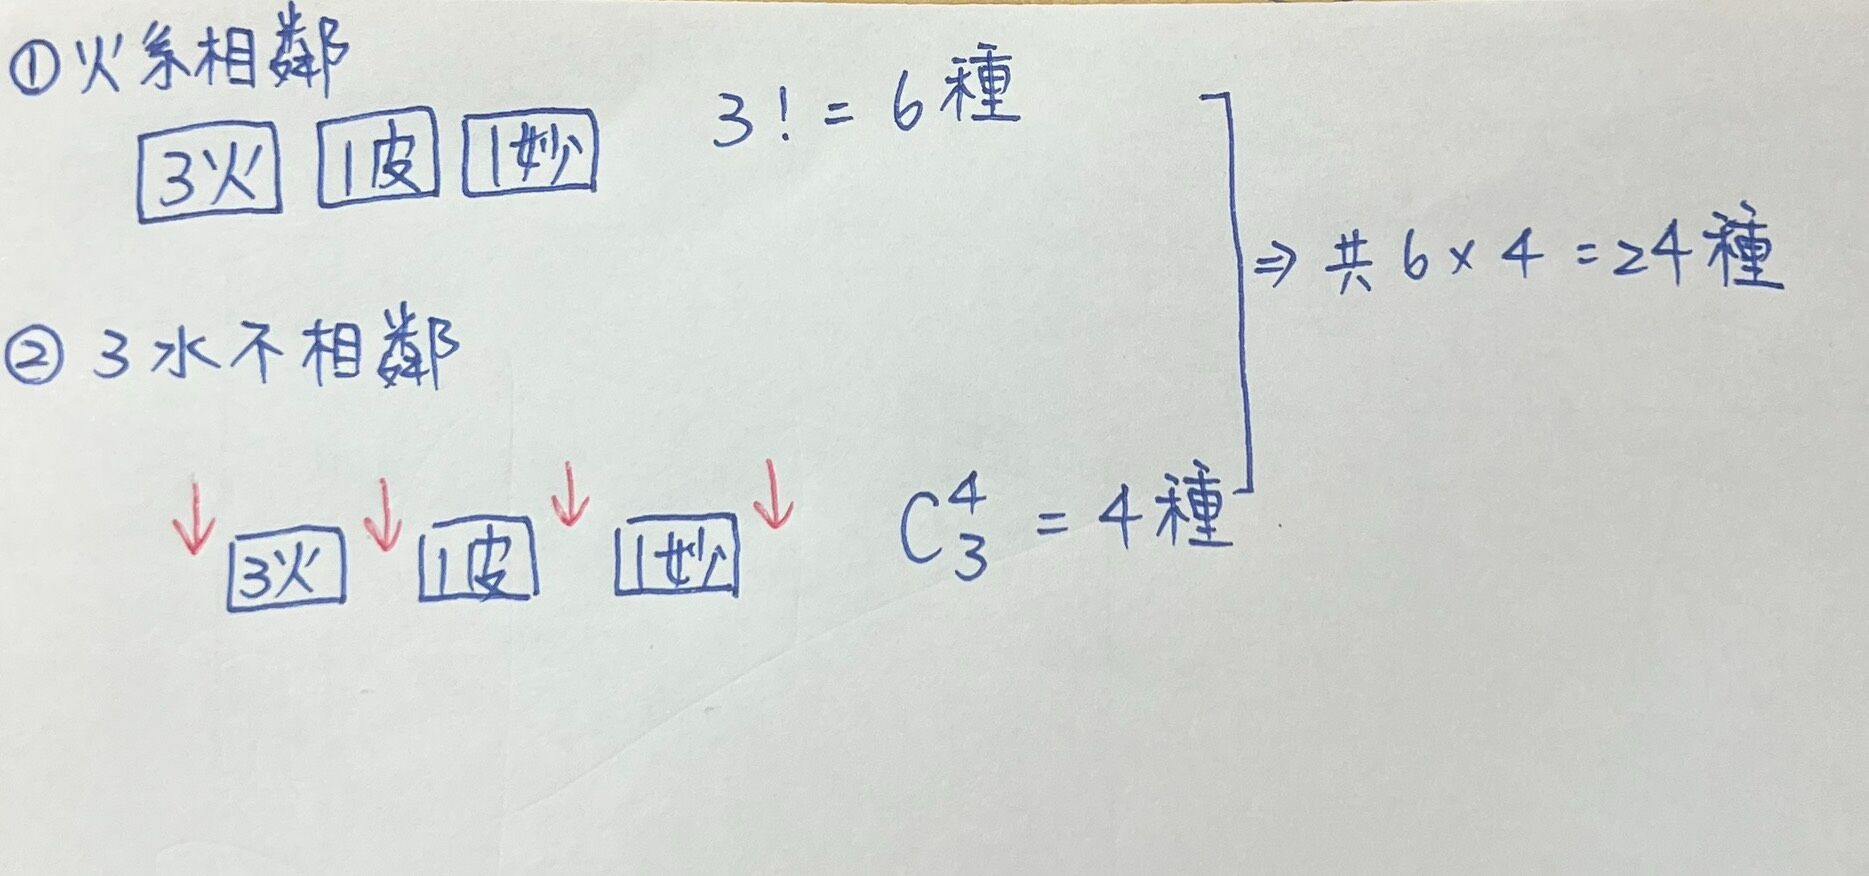 ①火系相鄰
3火 1皮 1妙 3! = 6種
⇒ 共 6 × 4 = 24種
② 3水不相鄰
↓ 3火 ↓ 1皮 ↓ 1妙 ↓ C⁴₃ = 4種